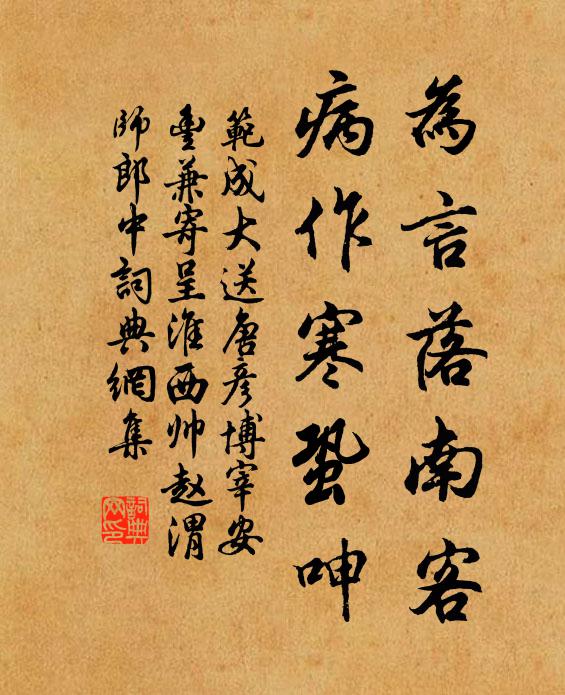 為言落南客
病作寒蛩呻
範成大送唐彦博宰安
豐兼寄呈淮西帅赵渭
師郎中詞典網集
詞典
网印